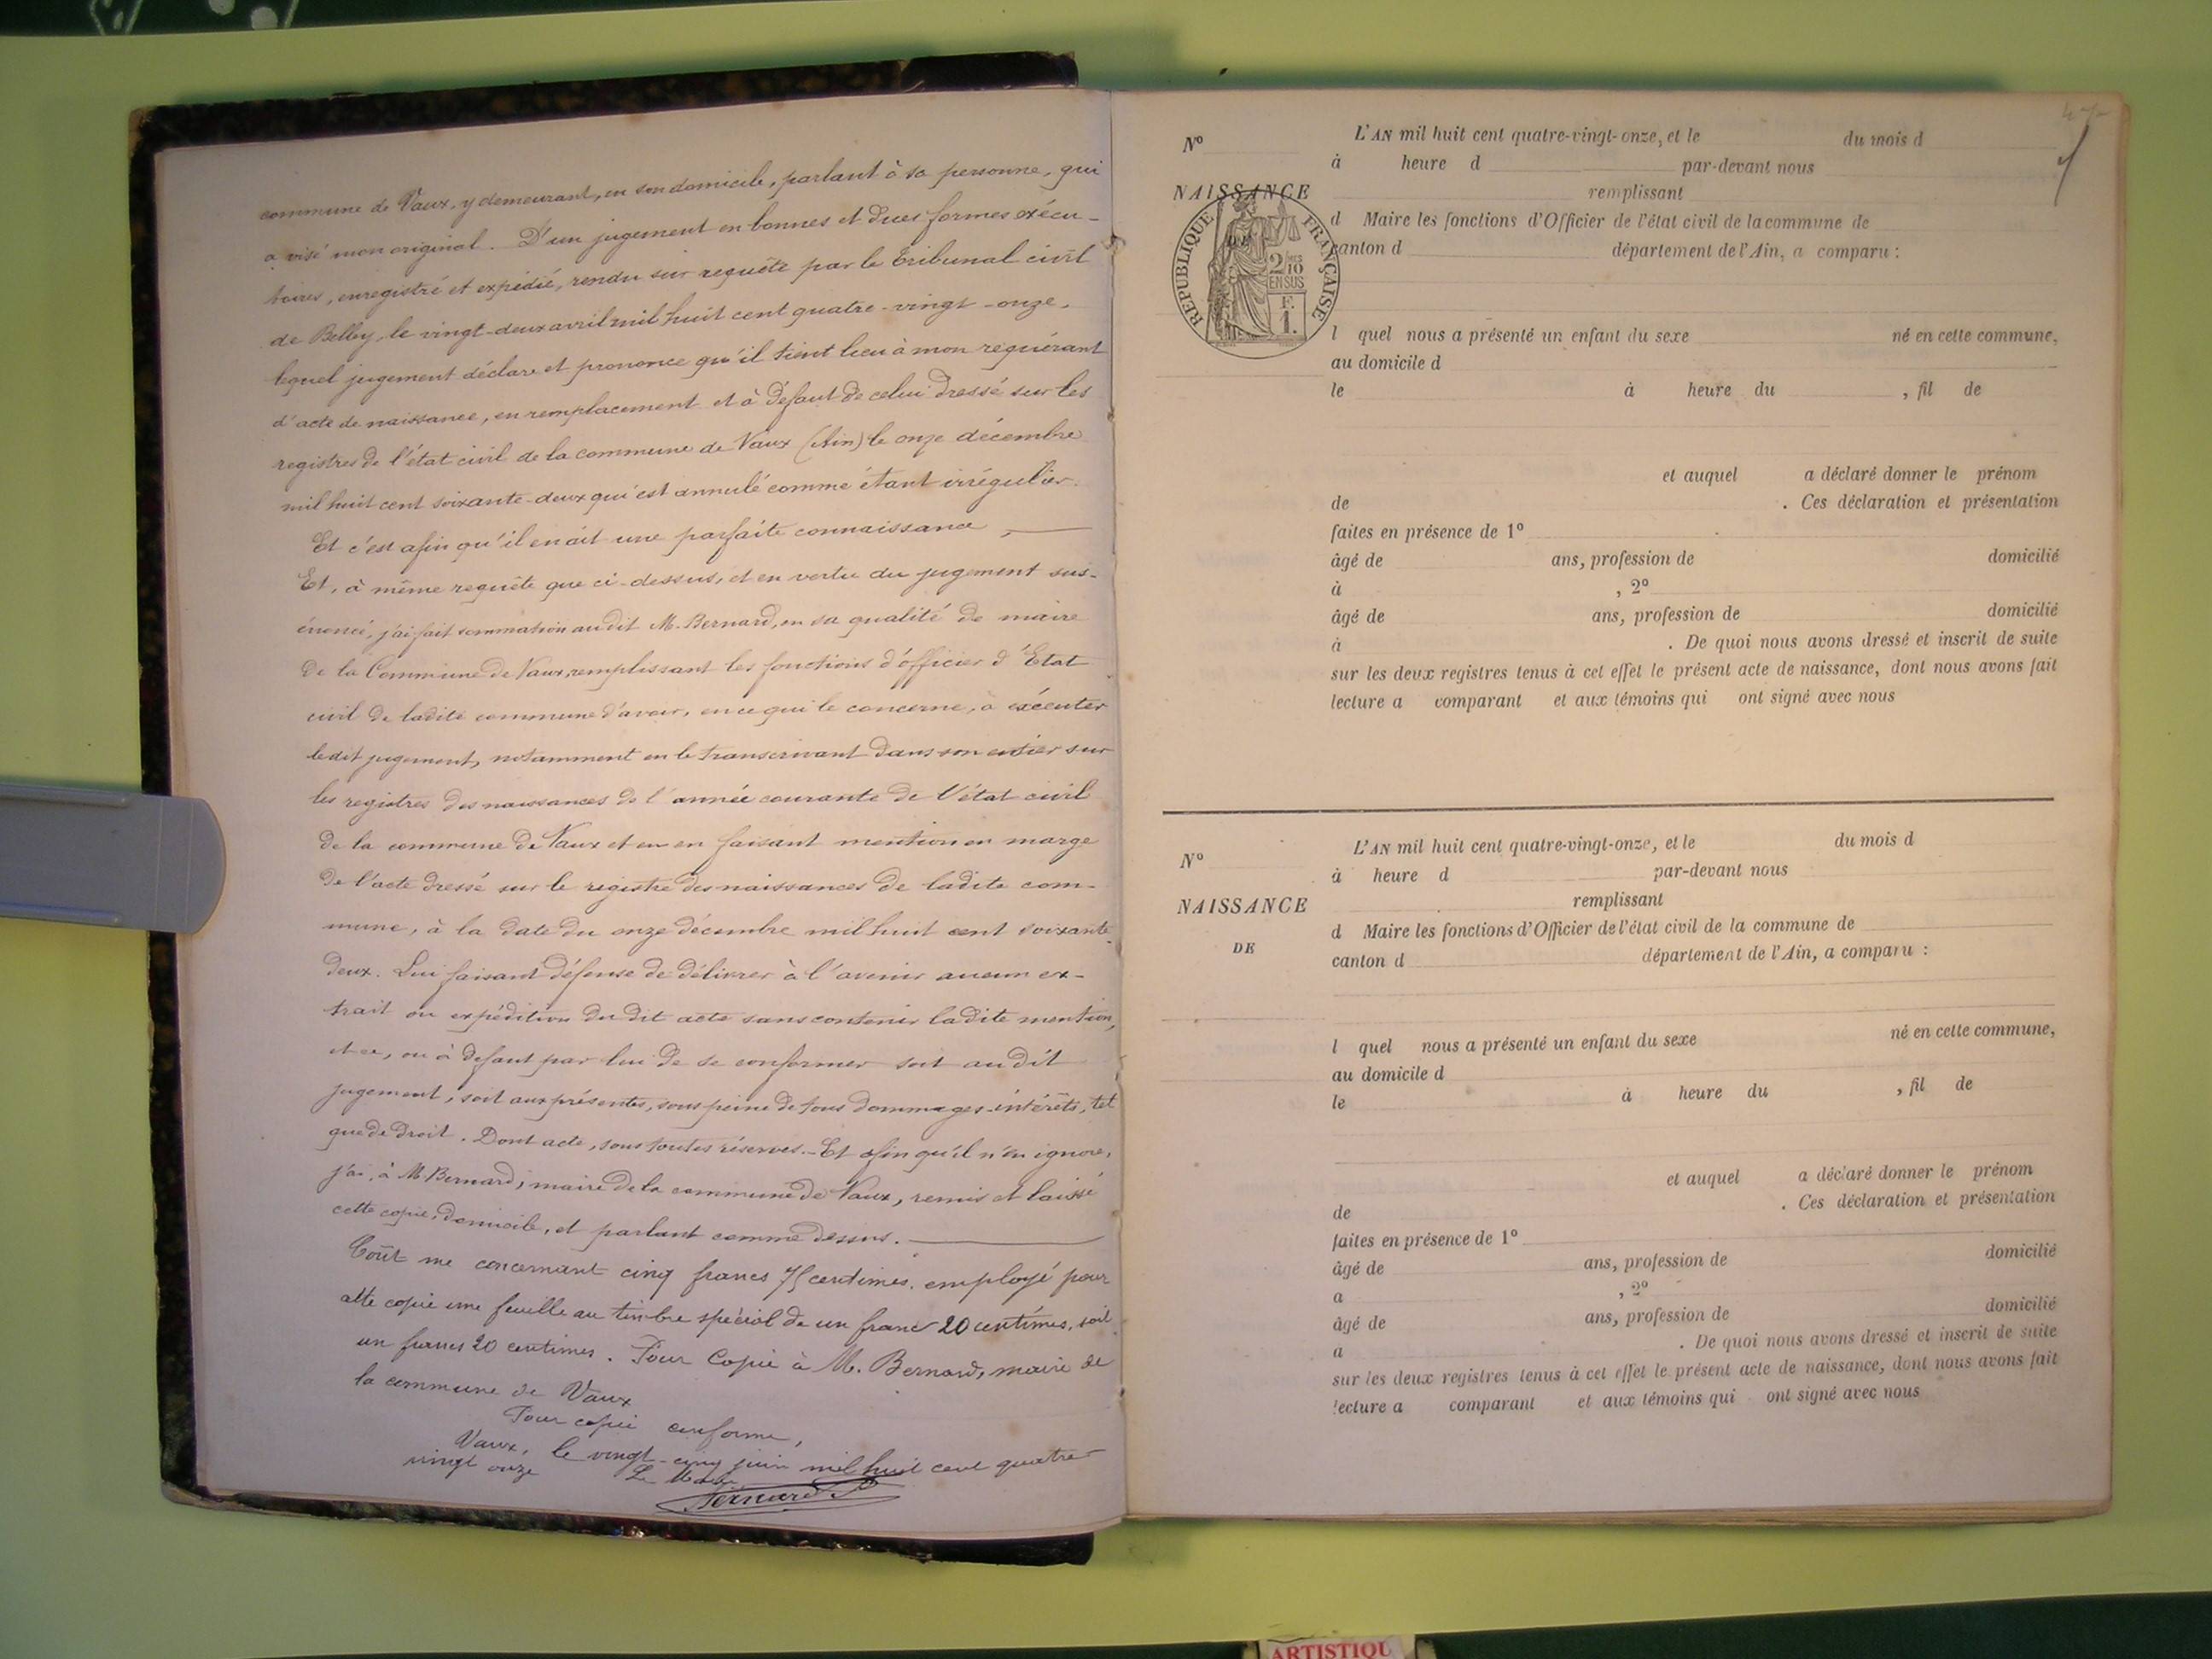 commune de Vaux, y demeurant, en son domicile, parlant à sa personne, qui
a visé mon original. D'un jugement en bonnes et dues formes exécu-
toires, enregistré et expédié, rendu sur requête par le tribunal civil
de Belley, le vingt-deux avril mil huit cent quatre-vingt-onze,
lequel jugement déclare et prononce qu'il tient lieu à mon requérant
d'acte de naissance, en remplacement et à défaut de celui dressé sur les
registres de l'état civil de la commune de Vaux (Ain) le onze décembre
mil huit cent soixante-deux qui est annulé comme étant irrégulier.
Et c'est afin qu'il en ait une parfaite connaissance,
Et, à même requête que ci-dessus, et en vertu du jugement sus-
énoncé, j'ai fait sommation audit M. Bernard, en sa qualité de maire
de la Commune de Vaux, remplissant les fonctions d'officier d'Etat
civil de ladite commune d'avoir, en ce qui le concerne, à exécuter
ledit jugement, notamment en le transcrivant dans son entier sur
les registres des naissances de l'année courante de l'état civil
de la commune de Vaux et en en faisant mention en marge
de l'acte dressé sur le registre des naissances de ladite com-
mune, à la date du onze décembre mil huit cent soixante-
deux. Lui faisant défense de délivrer à l'avenir aucun ex-
trait ou expédition du dit acte sans contenir ladite mention,
et ce, ou à défaut par lui de se conformer soit audit
jugement, soit aux présentes, sous peine de tous dommages-intérêts, tel
que de droit. Dont acte, sous toutes réserves. - Et afin qu'il n'en ignore,
j'ai, à M. Bernard, maire de la commune de Vaux, remis et laissé
cette copie, domicile, et parlant comme dessus.
Coût me concernant cinq francs 75 centimes. employé pour
cette copie une feuille au timbre spécial de un franc 20 centimes, soit
un francs 20 centimes. Pour Copie à M. Bernard, maire de
la commune de Vaux
Pour copie conforme,
Vaux, le vingt-cinq juin mil huit cent quatre
vingt onze
Le Maire
Bernard
47
N° L'AN mil huit cent quatre-vingt-onze, et le du mois d
à heure d par-devant nous
NAISSANCE remplissant
d Maire les fonctions d'Officier de l'état civil de la commune de
canton d département de l'Ain, a comparu :
RÉPUBLIQUE FRANÇAISE
2/10 EN SUS
F.
1.
l quel nous a présenté un enfant du sexe né en cette commune,
au domicile d
le à heure du , fil de
et auquel a déclaré donner le prénom
de . Ces déclaration et présentation
faites en présence de 1°
âgé de ans, profession de domicilié
à , 2°
âgé de ans, profession de domicilié
à . De quoi nous avons dressé et inscrit de suite
sur les deux registres tenus à cet effet le présent acte de naissance, dont nous avons fait
lecture a comparant et aux témoins qui ont signé avec nous
N° L'AN mil huit cent quatre-vingt-onze, et le du mois d
à heure d par-devant nous
NAISSANCE remplissant
d Maire les fonctions d'Officier de l'état civil de la commune de
DE
canton d département de l'Ain, a comparu :
l quel nous a présenté un enfant du sexe né en cette commune,
au domicile d
le à heure du , fil de
et auquel a déclaré donner le prénom
de . Ces déclaration et présentation
faites en présence de 1°
âgé de ans, profession de domicilié
a , 2°
âgé de ans, profession de domicilié
a . De quoi nous avons dressé et inscrit de suite
sur les deux registres tenus à cet effet le présent acte de naissance, dont nous avons fait
lecture a comparant et aux témoins qui ont signé avec nous
ARTISTIQU